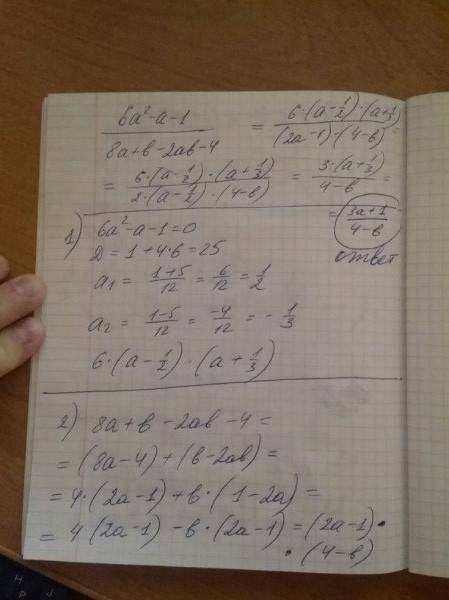 (6a²-a-1)/(8a+в-2aв-4) = (6·(a-1/2)·(a+1/3))/((2a-1)·(4-в)) =
= (6·(a-1/2)·(a+1/3))/(2·(a-1/2)·(4-в)) = (3·(a+1/3))/(4-в) =
= (3a+1)/(4-в)
ответ
1) 6a²-a-1=0
Д=1+4·6=25
a₁ = (1+5)/12 = 6/12 = 1/2
a₂ = (1-5)/12 = -4/12 = -1/3
6·(a-1/2)·(a+1/3)
2) 8a+в-2aв-4=
=(8a-4)+(в-2aв)=
=4·(2a-1)+в·(1-2a)=
=4(2a-1)-в·(2a-1)=(2a-1)·
·(4-в)